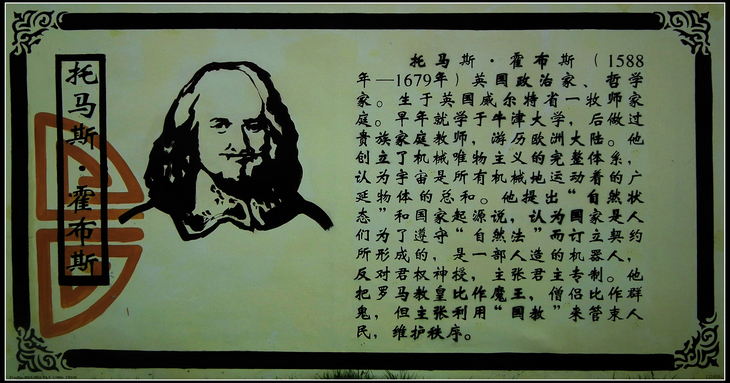 托马斯·霍布斯
托马斯·霍布斯（1588
年—1679年）英国政治家、哲学
家。生于英国威尔特省一牧师家
庭。早年就学于牛津大学，后做过
贵族家庭教师，游历欧洲大陆。他
创立了机械唯物主义的完整体系，
认为宇宙是所有机械地运动着的广
延物体的总和。他提出“自然状
态”和国家起源说，认为国家是人
们为了遵守“自然法”而订立契约
所形成的，是一部人造的机器人，
反对君权神授，主张君主专制。他
把罗马教皇比作魔王，僧侣比作群
鬼，但主张利用“国教”来管束人
民，维护秩序。